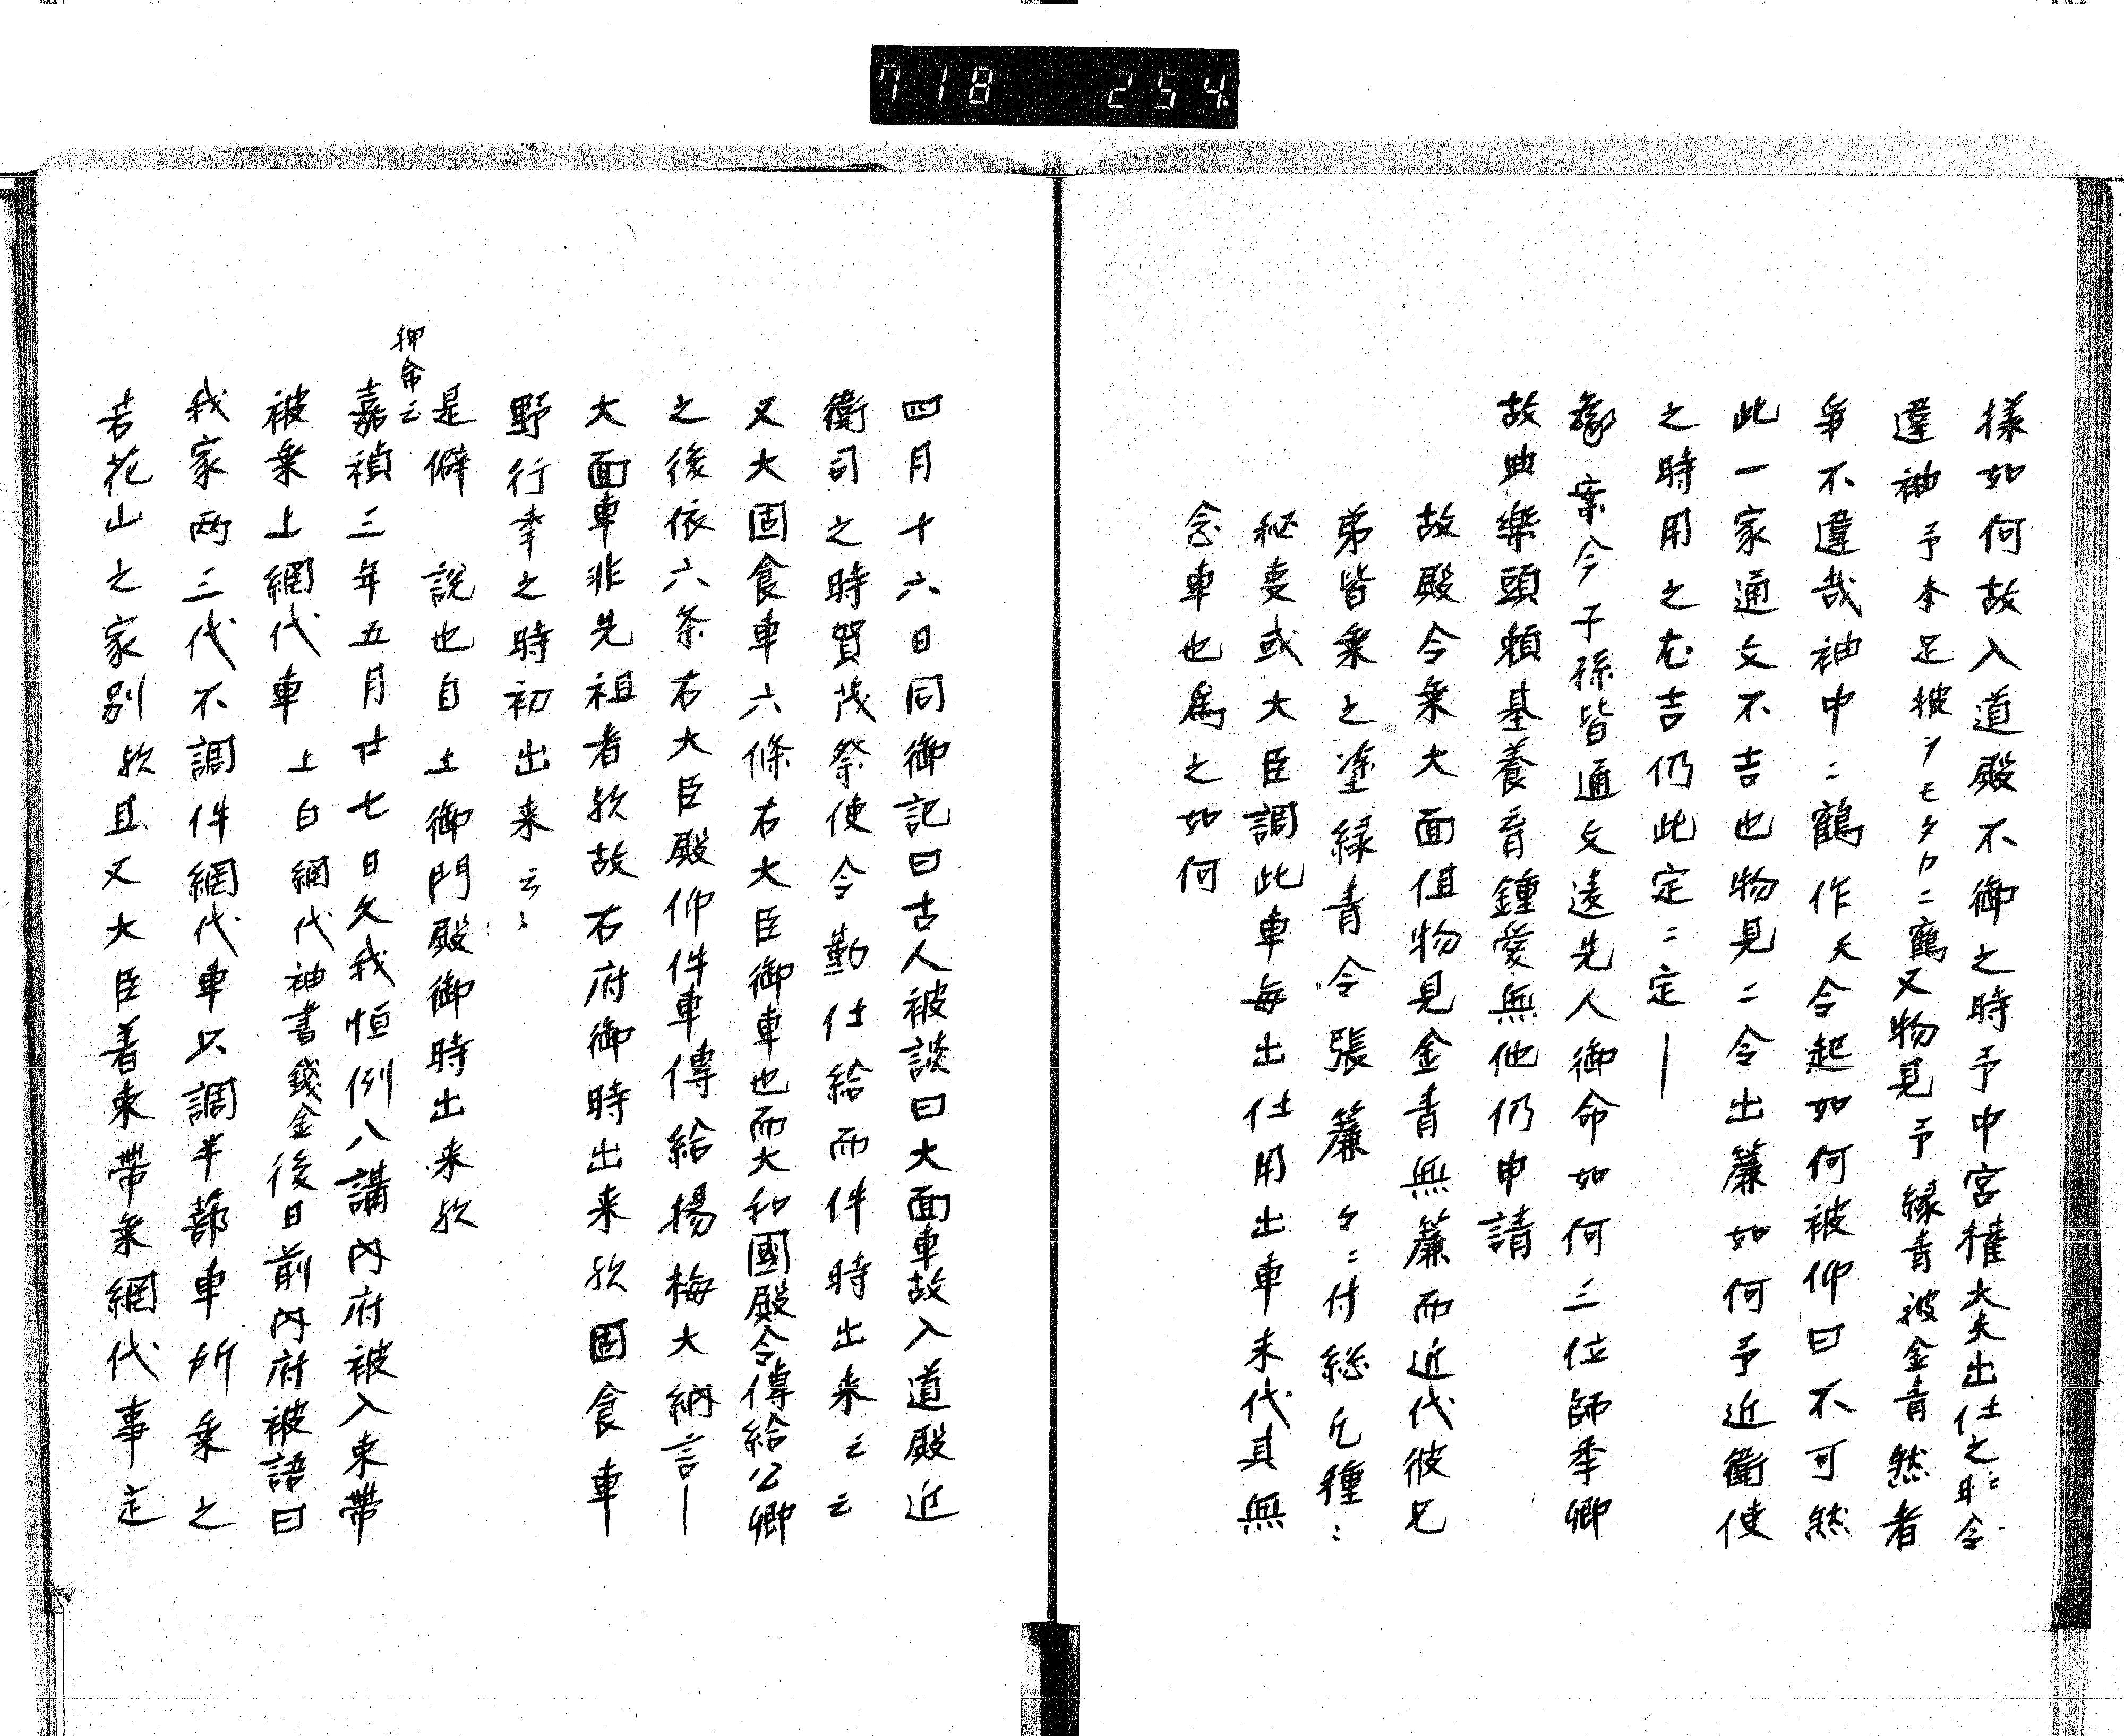 718 254
様如何故入道殿不御之時予中宮権大夫出仕之時ニ令
違袖予本足披ヲモタカニ鶴又物見予緑青被金青然者
争不違哉袖中ニ鶴作天令起如何被仰曰不可然
此一家通文不吉也物見ニ令出簾如何予近衛使
之時用之尤吉仍此定ニ定—
案今子孫皆通文違先人御命如何三位師季卿
故典楽頭頼基養育鍾愛無他仍申請
故殿令乗大面但物見金青無簾而近代彼兄
弟皆乗之塗緑青令張簾々ニ付総凡種ニ
秘事或大臣調此車毎出仕用出車末代其無
念車也為之如何
四月十六日同御記曰古人被談曰大面車故入道殿近
衛司之時賀茂祭使令勤仕給而件時出来云云
又大固食車六條右大臣御車也而大和國殿令傳給公卿
之後依六条右大臣殿仰件車傳給揚梅大納言—
大面車非先祖者欤故右府御時出来欤固食車
野行幸之時初出来云々
是僻説也自土御門殿御時出来欤
押命云
嘉禎三年五月廿七日久我恒例八講内府被入束帯
被乗上網代車上白網代袖書錢金後日前内府被語曰
我家両三代不調件網代車只調半蔀車所乗之
若花山之家別欤且又大臣着束帯乗網代事定